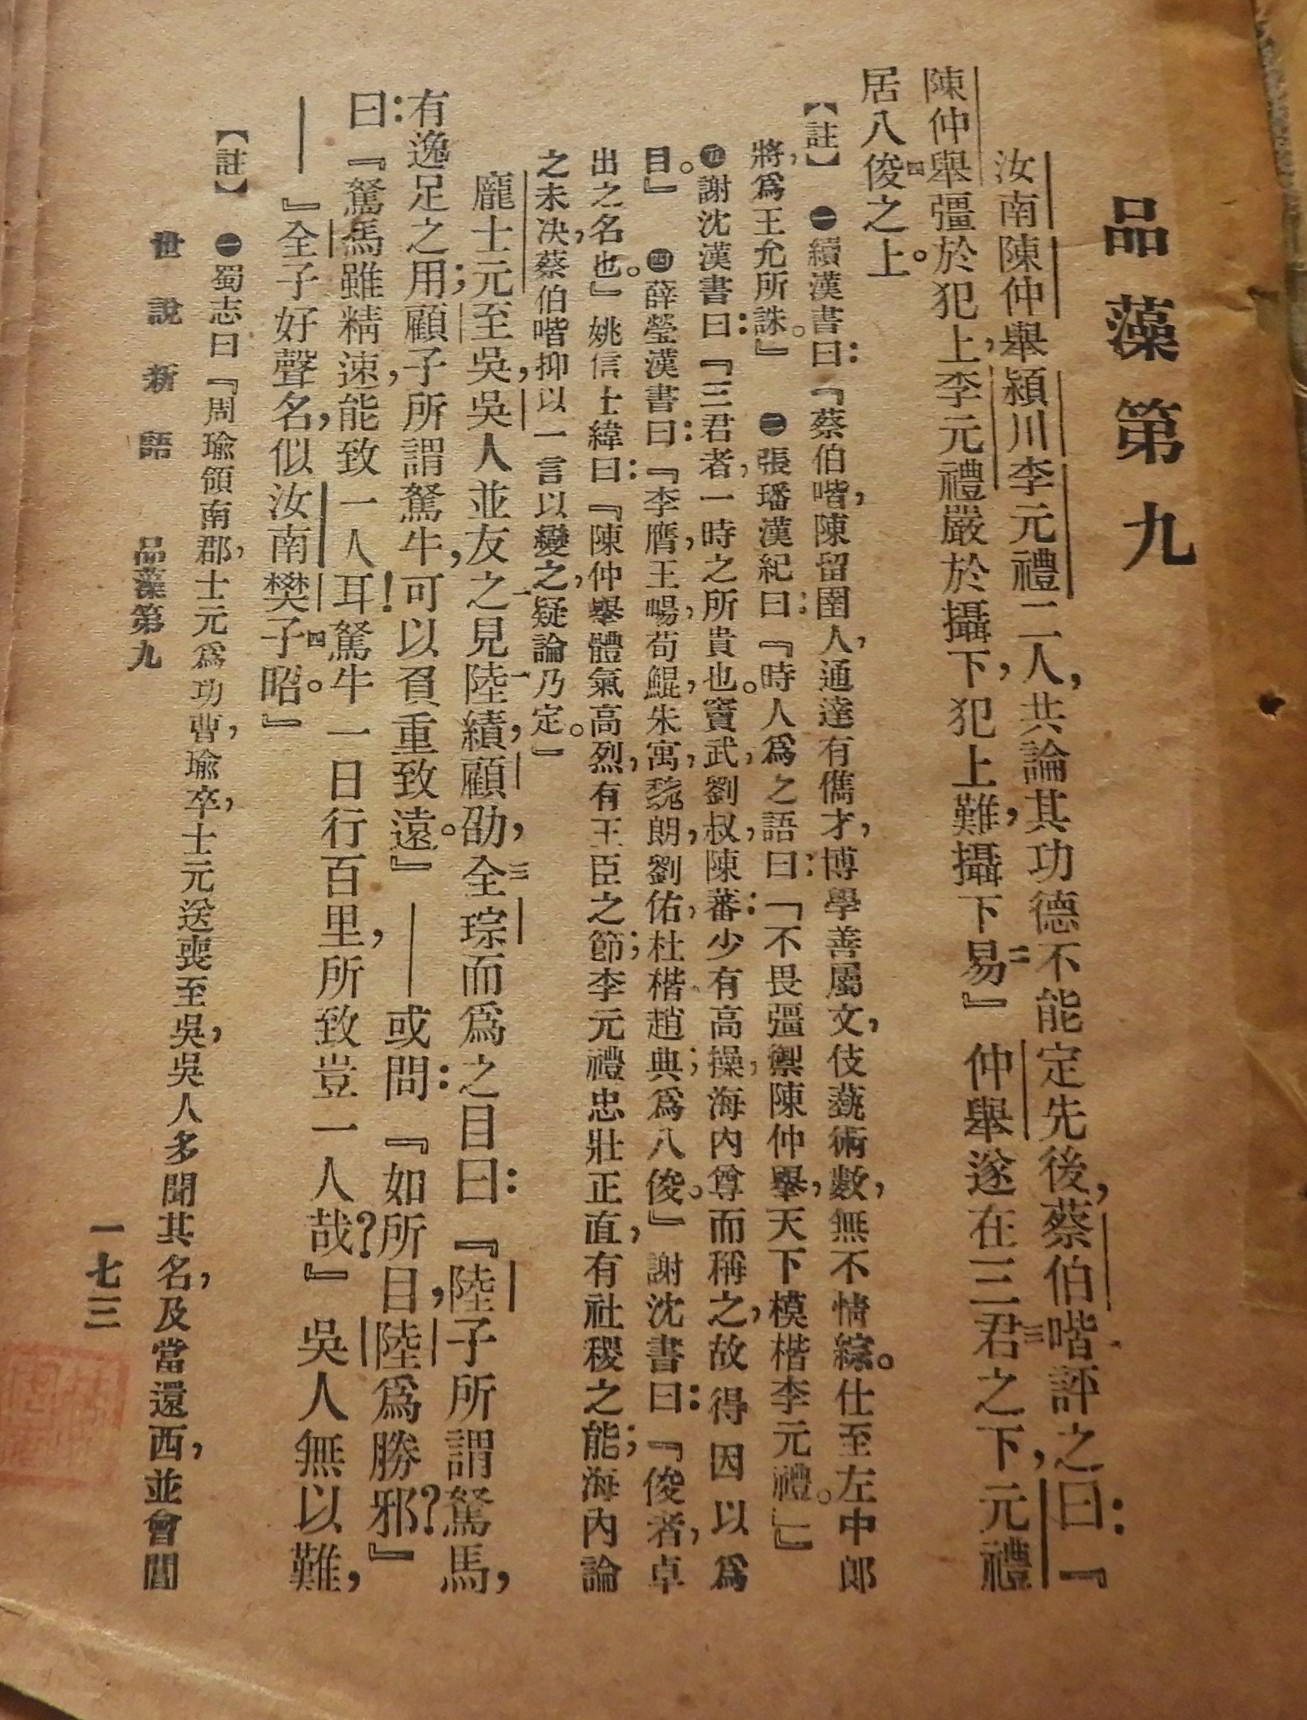 品藻第九
汝南陳仲舉,潁川李元禮二人,共論其功德,不能定先後,蔡伯喈評之曰:『
陳仲舉彊於犯上,李元禮嚴於攝下,犯上難,攝下易。』仲舉遂在三君之下,元禮
居八俊之上。
【註】㊀續漢書曰:『蔡伯喈,陳留圉人,通達有儁才,博學善屬文,伎藝術數,無不精綜。仕至左中郎
將,爲王允所誅。』㊁張璠漢紀曰:『時人爲之語曰:「不畏彊禦陳仲舉,天下模楷李元禮。」』
㊂謝沈漢書曰:『三君者,一時之所貴也。竇武,劉叔,陳蕃:少有高操,海內尊而稱之,故得因以爲
目。』㊃薛瑩漢書曰:『李膺,王暢,荀鯤,朱寓,魏朗,劉佑,杜楷,趙典;爲八俊。』謝沈書曰:『俊者,卓
出之名也。』姚信士緯曰:『陳仲舉體氣高烈,有王臣之節;李元禮忠壯正直,有社稷之能;海內論
之未決,蔡伯喈抑以一言以變之,疑論乃定。』
龐士元至吳,吳人並友之見陸績,顧劭,全琮而爲之目曰:『陸子所謂駑馬,
有逸足之用;顧子所謂駑牛,可以負重致遠。』——或問:『如所目,陸爲勝邪?』
曰:『駑馬雖精速,能致一人耳!駑牛一日行百里,所致豈一人哉?』吳人無以難,
——』全子好聲名,似汝南樊子昭。』
【註】㊀蜀志曰『周瑜領南郡,士元爲功曹,瑜卒,士元送喪至吳,吳人多聞其名,及當還西,並會閶
世說新語 品藻第九
一七三